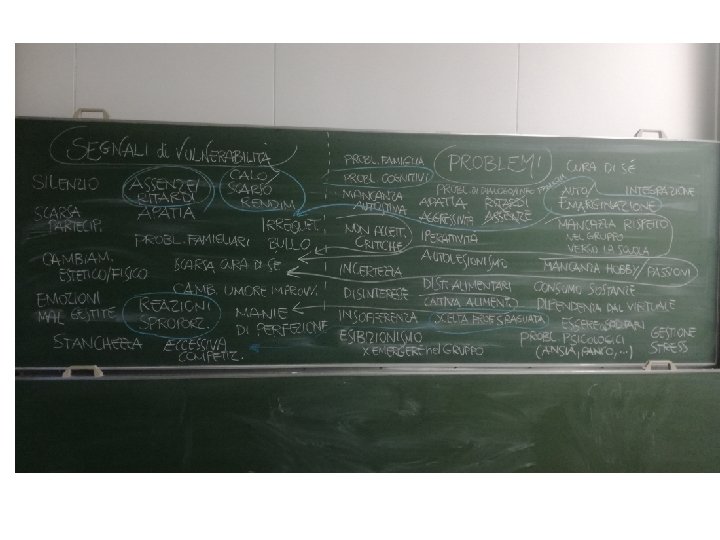 SEGNALI di VULNERABILITÀ
SILENZIO
ASSENZE/
RITARDI
CALO/
SCARSO
RENDIM.
SCARSA
PARTECIP.
APATIA
IRREQUIET.
PROBL. FAMILIARI
BULLO
CAMBIAM.
ESTETICO/FISICO
SCARSA CURA DI SÉ
CAMB. UMORE IMPROVV.
EMOZIONI
MAL GESTITE
REAZIONI
SPROPORZ.
MANIE
DI PERFEZIONE
STANCHEZZA
ECCESSIVA
COMPETIZ.
PROBLEMI
PROBL. FAMIGLIA
PROBL. COGNITIVI
MANCANZA
NON ACCETT.
CRITICHE
INCERTEZZA
DISINTERESSE
INSOFFERENZA
ESIBIZIONISMO
X EMERGERE nel GRUPPO
APATIA
AGGRESSIVITÀ
RITARDI
ASSENZE
IPERATTIVITÀ
AUTOLESIONISMO
DIST. ALIMENTARI
CATTIVA ALIMENTAZ.
SCELTA PROF. SBAGLIATA
CURA DI SÉ
AUTO/
EMARGINAZIONE
INTEGRAZIONE
MANCANZA RISPETTO
NEL GRUPPO
VERSO LA SCUOLA
MANCANZA HOBBY/PASSIONI
CONSUMO SOSTANZE
DIPENDENZA DAL VIRTUALE
ESSERE SOLITARI
PROBL. PSICOLOGICI
(ANSIA, PANICO, ...)
GESTIONE
STRESS